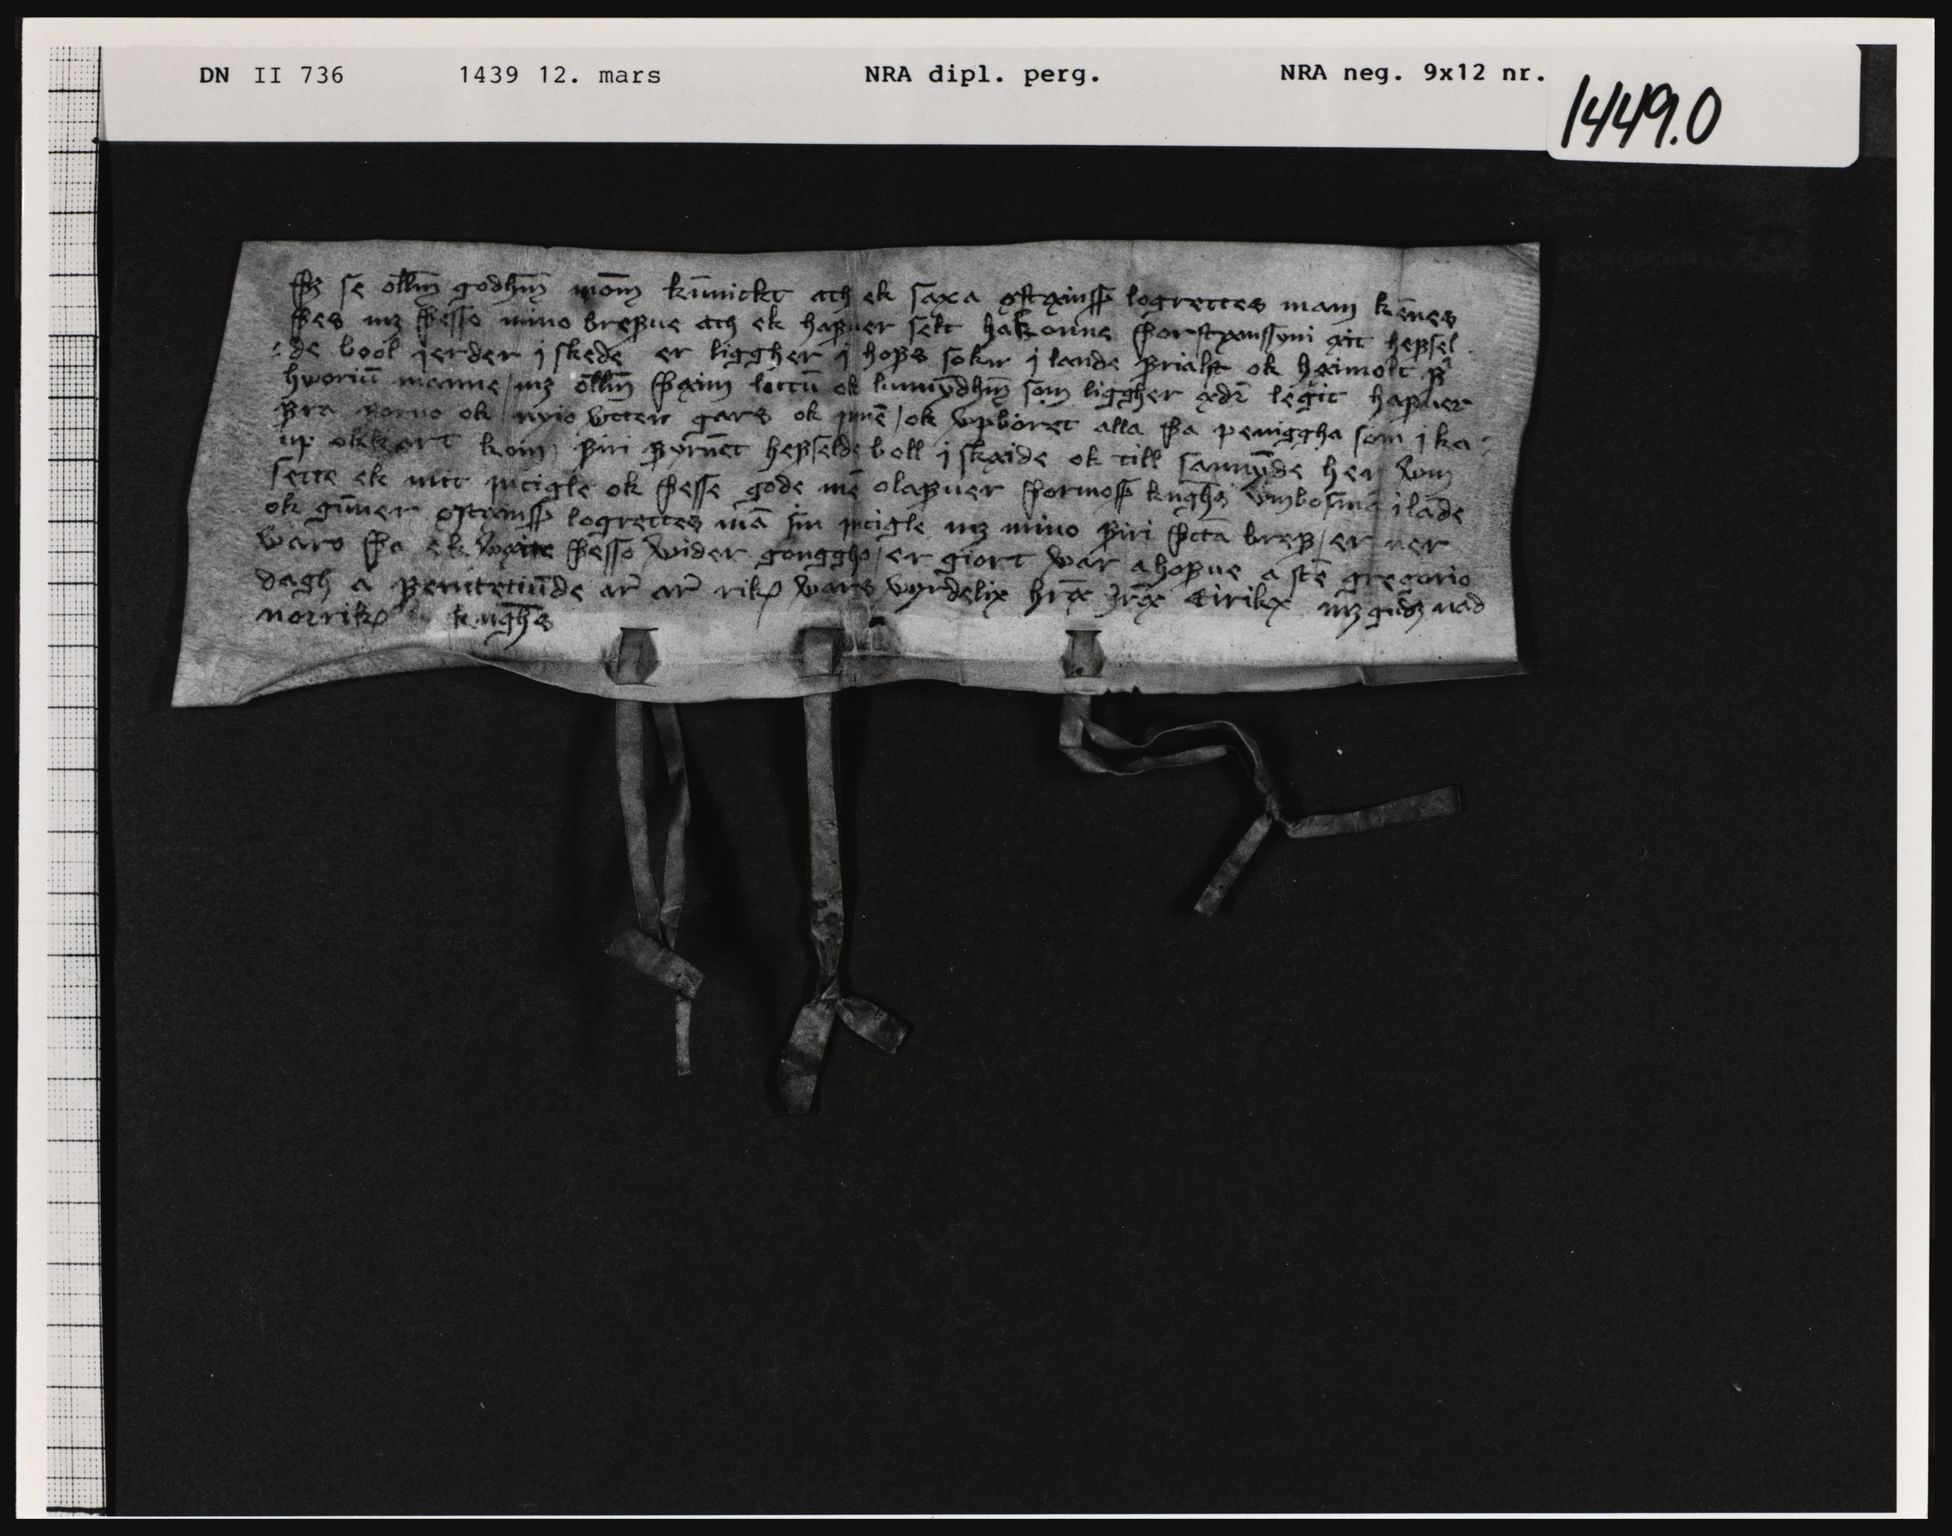 DN II 736 1439 12. mars NRA dipl. perg. NRA neg. 9x12 nr.
1449.0
Þz se ollum godhum monnum kunnickt ath ek saxa østæinss logrettes man kennes
þes mz þesso mino brefue ath ek hafuer selt hakonne þorstæinssyni æit hefsel
de bool jerder j skede er liggher j hofs sokn j lande frialst ok hæimolt f
hvorium manne / mz ollum þæim lottum ok lunnyndhum som liggher ædr legit hafuer
fra forno ok nyio vtten gars ok jnnen / ok vpboret alla þa peniggha som j ka
up okkart kom firi fyrnemt hefselde boll j skæide ok till sannynde her vm
sette ek mit jncigle ok þesse gode men olafuer þormoss knghs vmbosman j lande
ok gunner østæinss logrettes man sin jncigle mz mino firi þetta bref / er ner
varo þa ek væite þesso vider gonggho / er giort var a hofue a sce gregorio
dagh a femtetiunde ar ar rikes vars vyrdelix hræ hræ Eirikx mz gudz nad
norrikes knghs